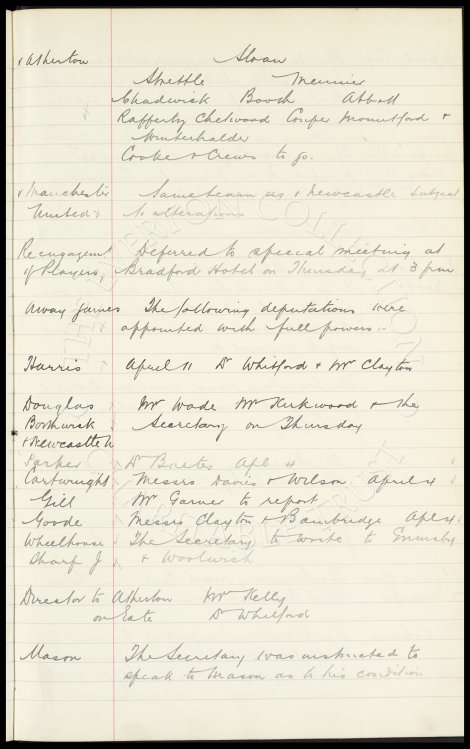 v Atherton Sloan
Strettle Meunier
Chadwick Booth Abbott
Rafferty Chetwood Couper Mountford &
Winterhalder
Cooke & Crews to go.
v Manchester Same team as v Newcastle subject
United to alterations
Reengagemt Deferred to special meeting at
of Players Bradford Hotel on Thursday at 3 pm
Away games The following deputations were
appointed with full powers:-
Harris April 11 Dr Whitford & Mr Clayton
Douglas Mr Wade Mr Kirkwood & the
Borthwick Secretary on Thursday
v Newcastle U
Parker Dr Baxter Apl 4
Cartwright Messrs Davies & Wilson April 4
Gill Mr Garner to report
Goode Messrs Clayton & Bainbridge Apl 4
Wheelhouse The Secretary to write to Grimsby
Sharp J & Woolwich
Director to Atherton Mr Kelly
on Gate Dr Whitford
Mason The Secretary was instructed to
speak to Mason as to his condition
THE EVERTON COLLECTION
TRUST